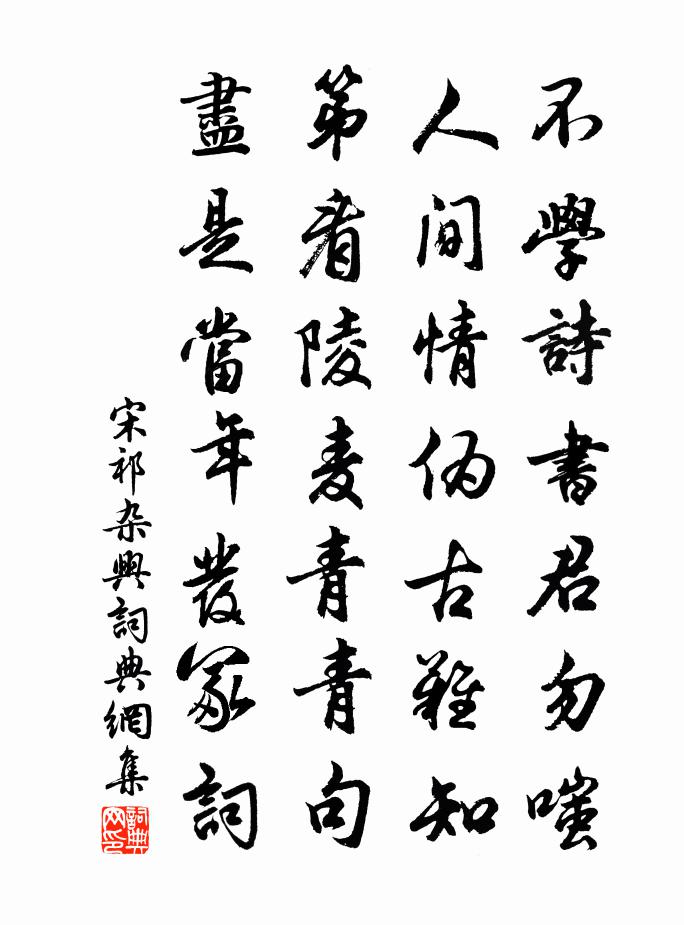 不學詩書君勿嗤
人間情偽古難知
第看陵麦青青句
盡是當年發冢詞
宋祁杂興詞典網集
詞典网印